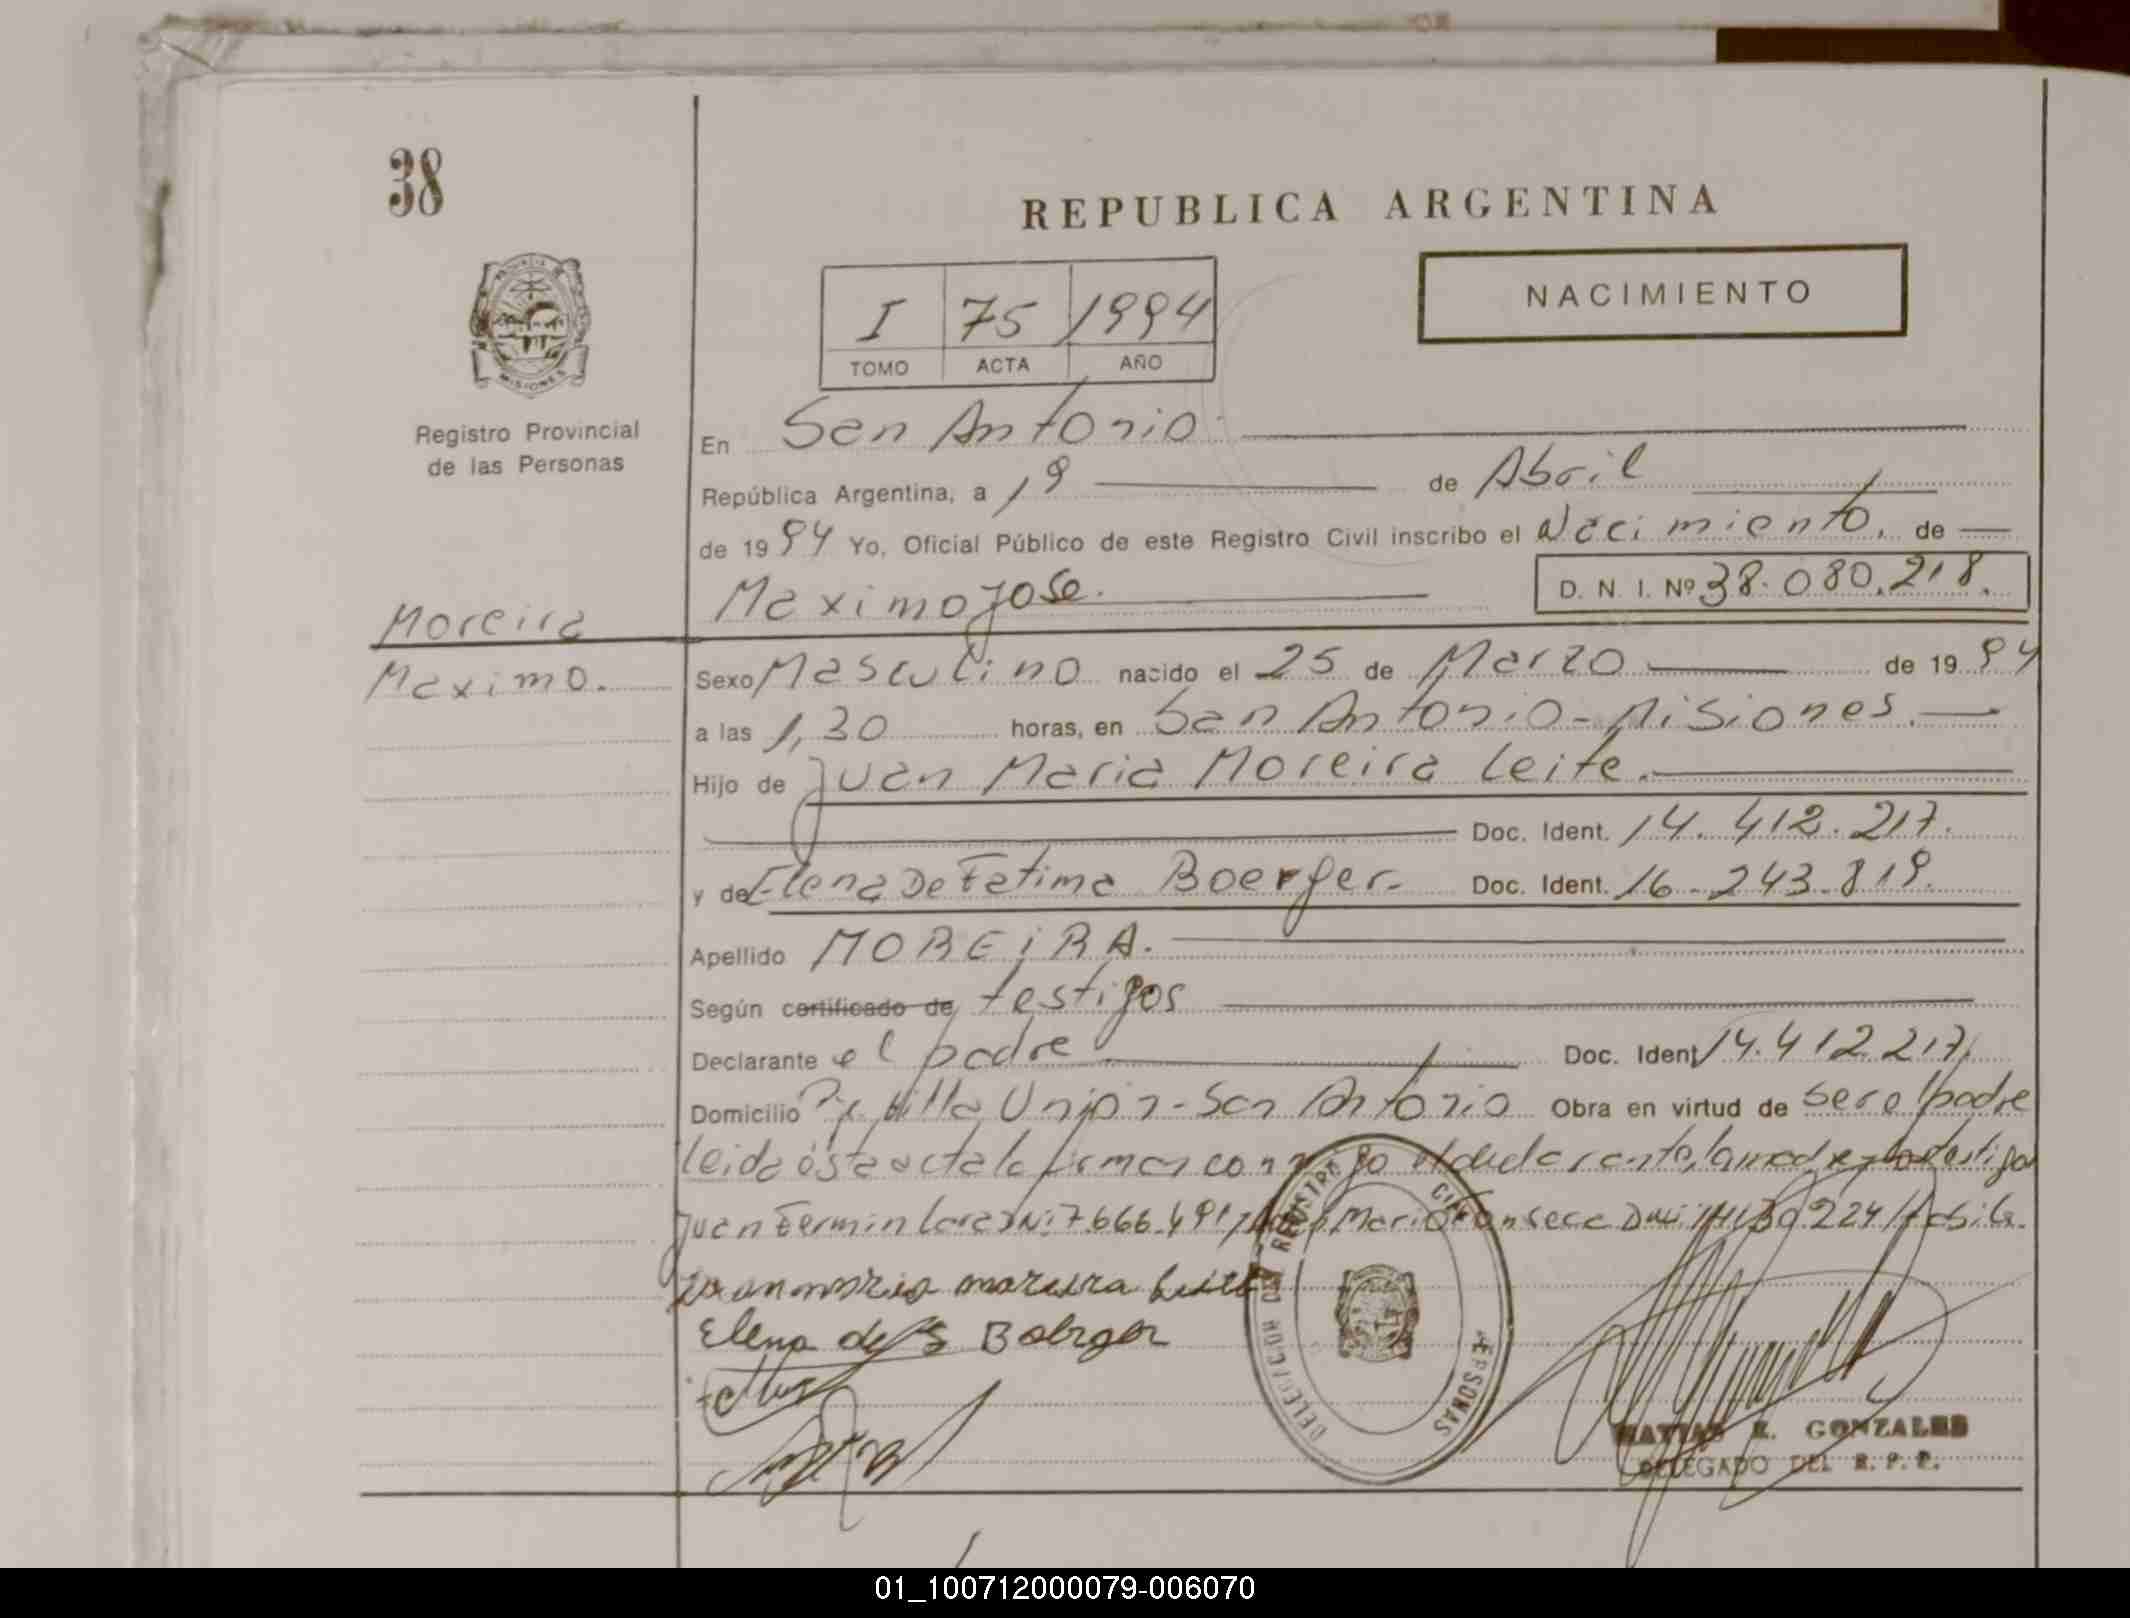 38
REPUBLICA ARGENTINA
NACIMIENTO
I 75 1994
TOMO ACTA AÑO
PROVINCIA DE
MISIONES
Registro Provincial
de las Personas
En San Antonio
República Argentina, a 19 de Abril
de 1994 Yo, Oficial Público de este Registro Civil inscribo el Nacimiento. de
Maximo Jose. D. N. I. Nº 38.080.218.
Moreira
Maximo.
Sexo Masculino nacido el 25 de Marzo de 1994
a las 1,30 horas, en San Antonio - Misiones.
Hijo de Juan Maria Moreira Leite.
Doc. Ident. 14.412.217.
y de Elena De Fatima Boerger. Doc. Ident. 16.243.819.
Apellido MOREIRA.
Según certificado de testigos
Declarante el padre Doc. Ident. 14.412.217.
Domicilio Villa Union - San Antonio Obra en virtud de ser el padre
Leida ésta acta la firman conmigo el declarante, la madre y los testigos
Juan Fermin DNI: 7.666.491 Mario Fonseca
Juan maria moreira leite
Elena de F Boerger
DELEGACION REGISTRO PERSONAS
MATIAS E. GONZALES
DELEGADO DEL R. P. P.
01_100712000079-006070